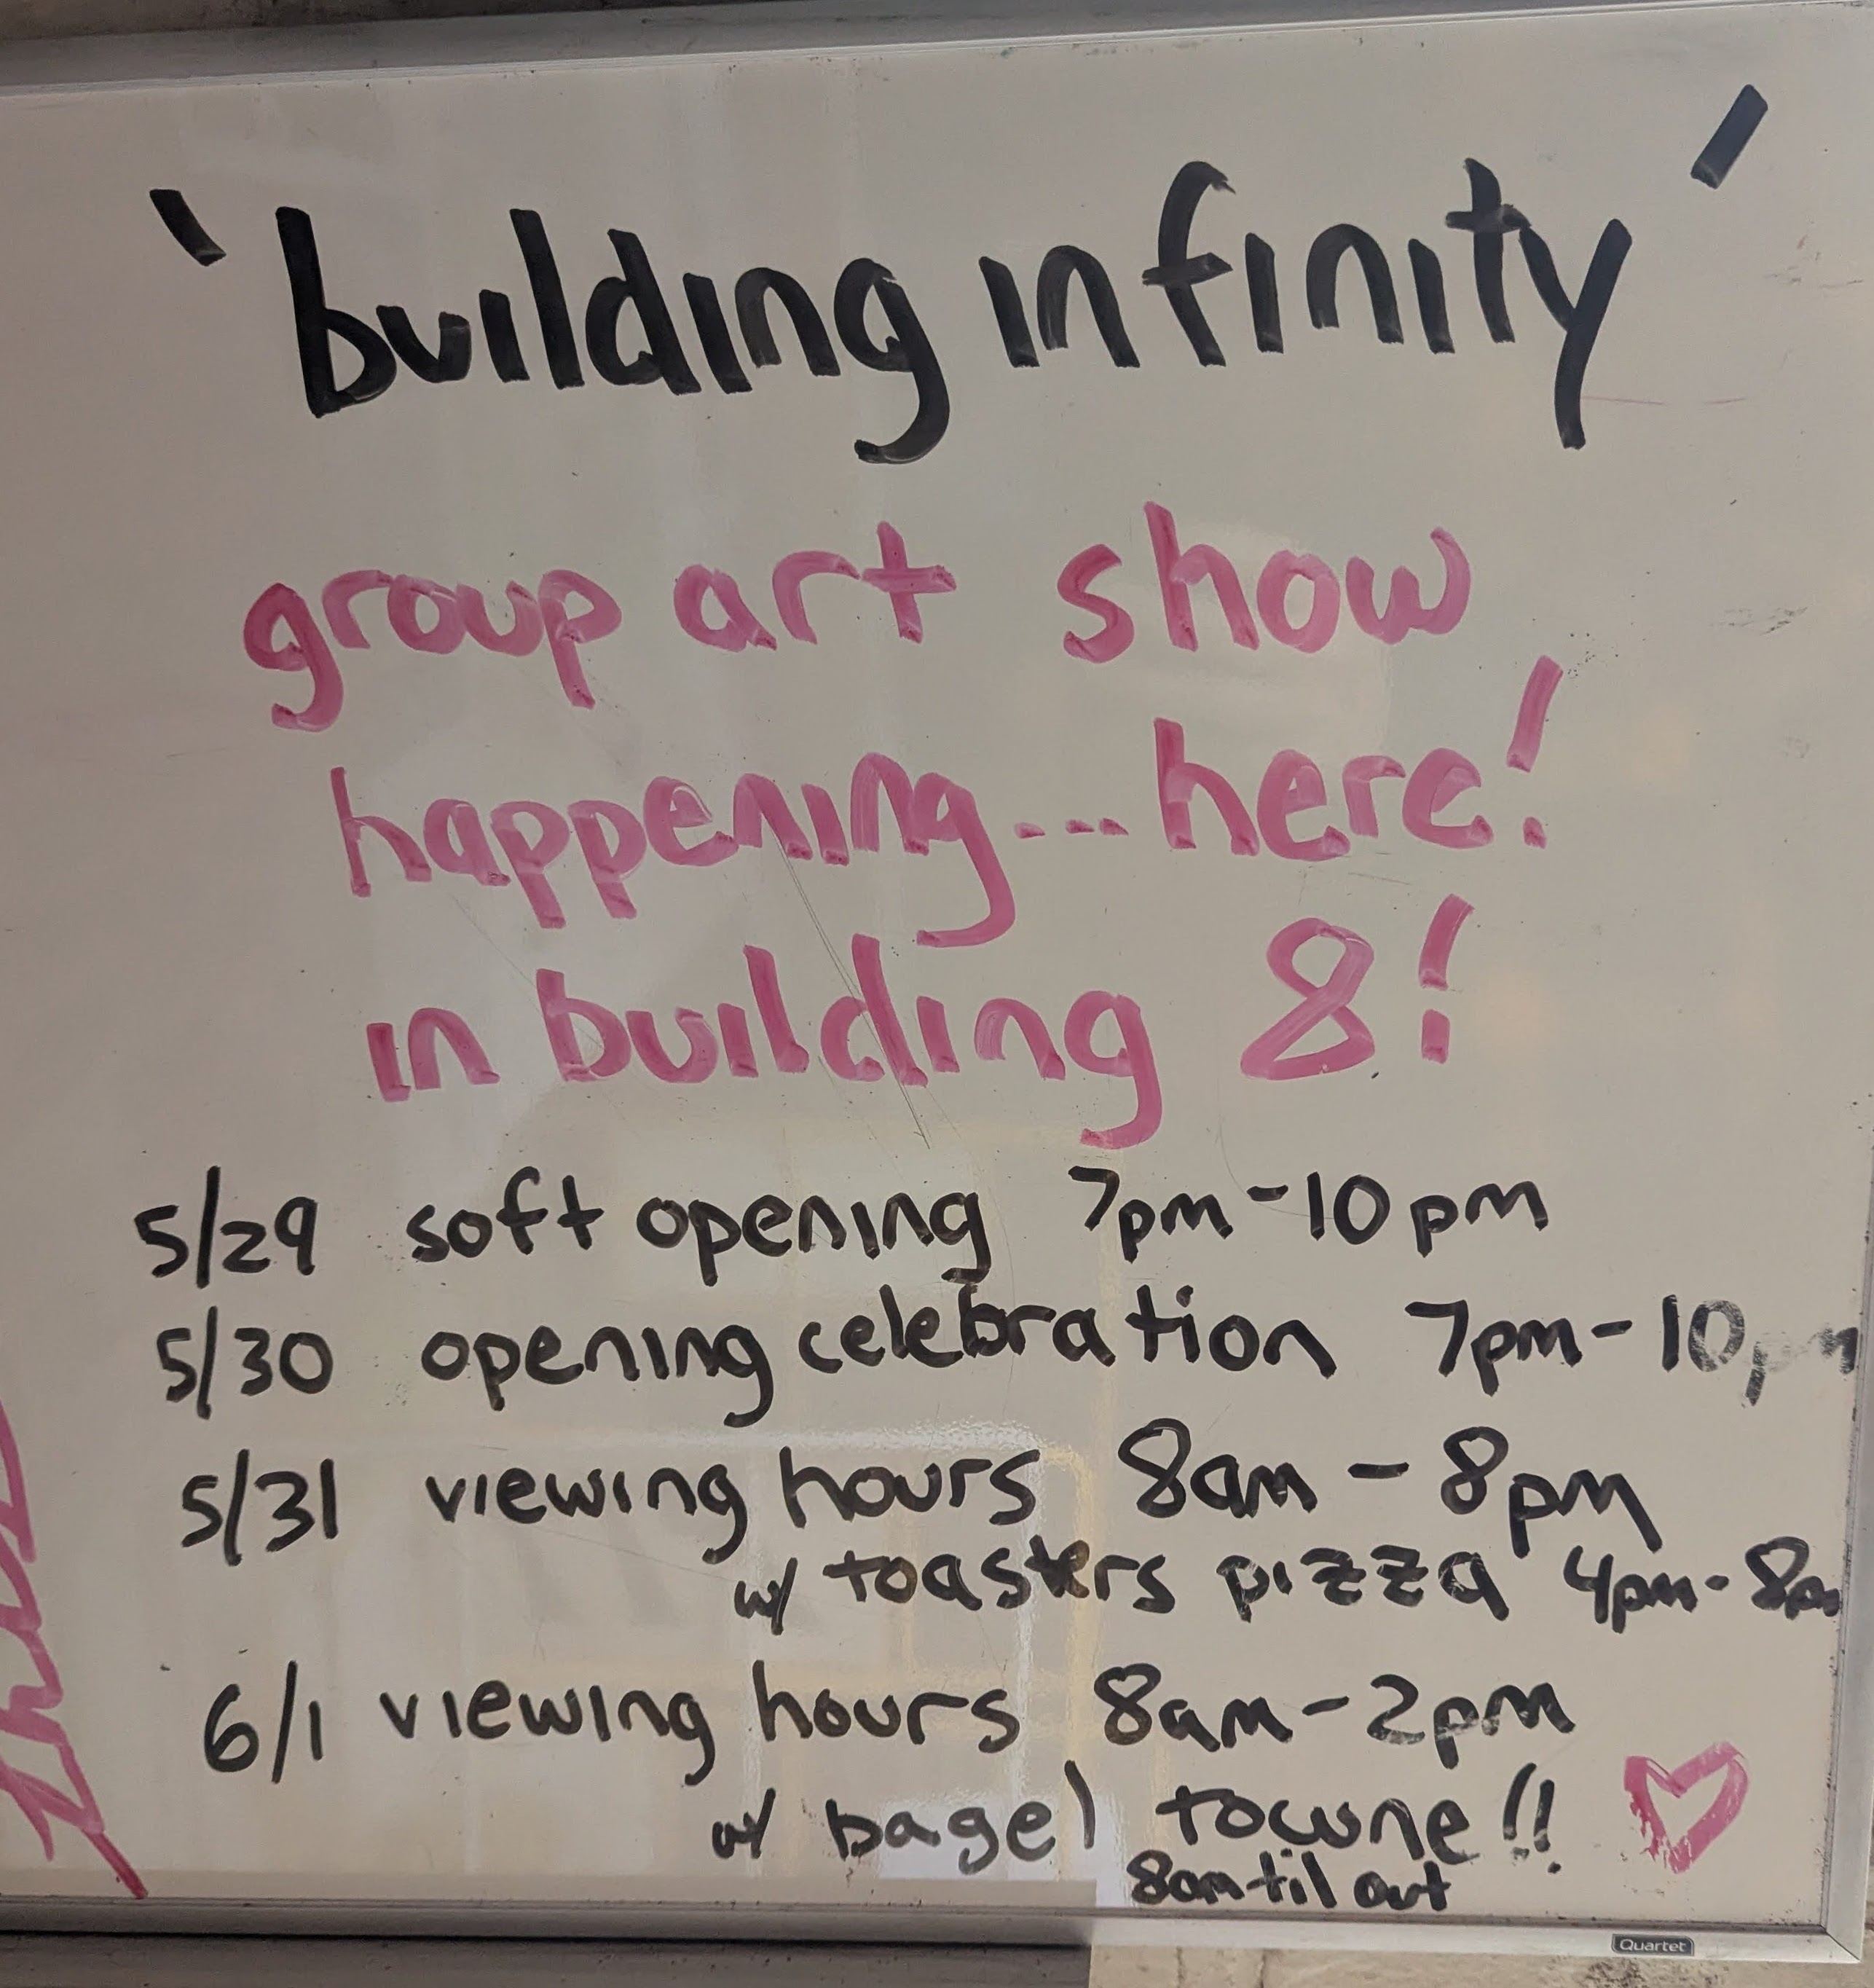 'building infinity'
group art show
happening... here!
in building 8!
5/29 soft opening 7pm-10pm
5/30 opening celebration 7pm-10pm
5/31 viewing hours 8am-8pm
w/ toasters pizza 4pm-8pm
6/1 viewing hours 8am-2pm
w/ bagel towne!!
8am til out
Quartet